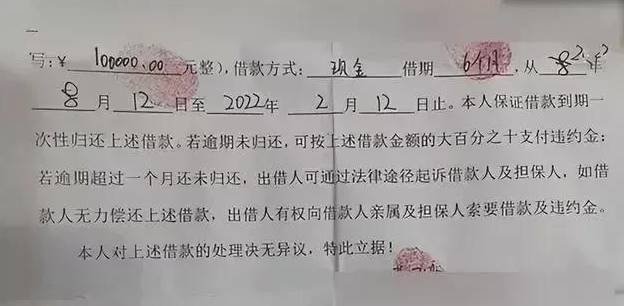 写:￥100000.00元整),借款方式:现金 借期6个月,从 年
8月12日至2022年2月12日止。本人保证借款到期一
次性归还上述借款。若逾期未归还,可按上述借款金额的大百分之十支付违约金;
若逾期超过一个月还未归还,出借人可通过法律途径起诉借款人及担保人,如借
款人无力偿还上述借款,出借人有权向借款人亲属及担保人索要借款及违约金。
本人对上述借款的处理决无异议,特此立据!